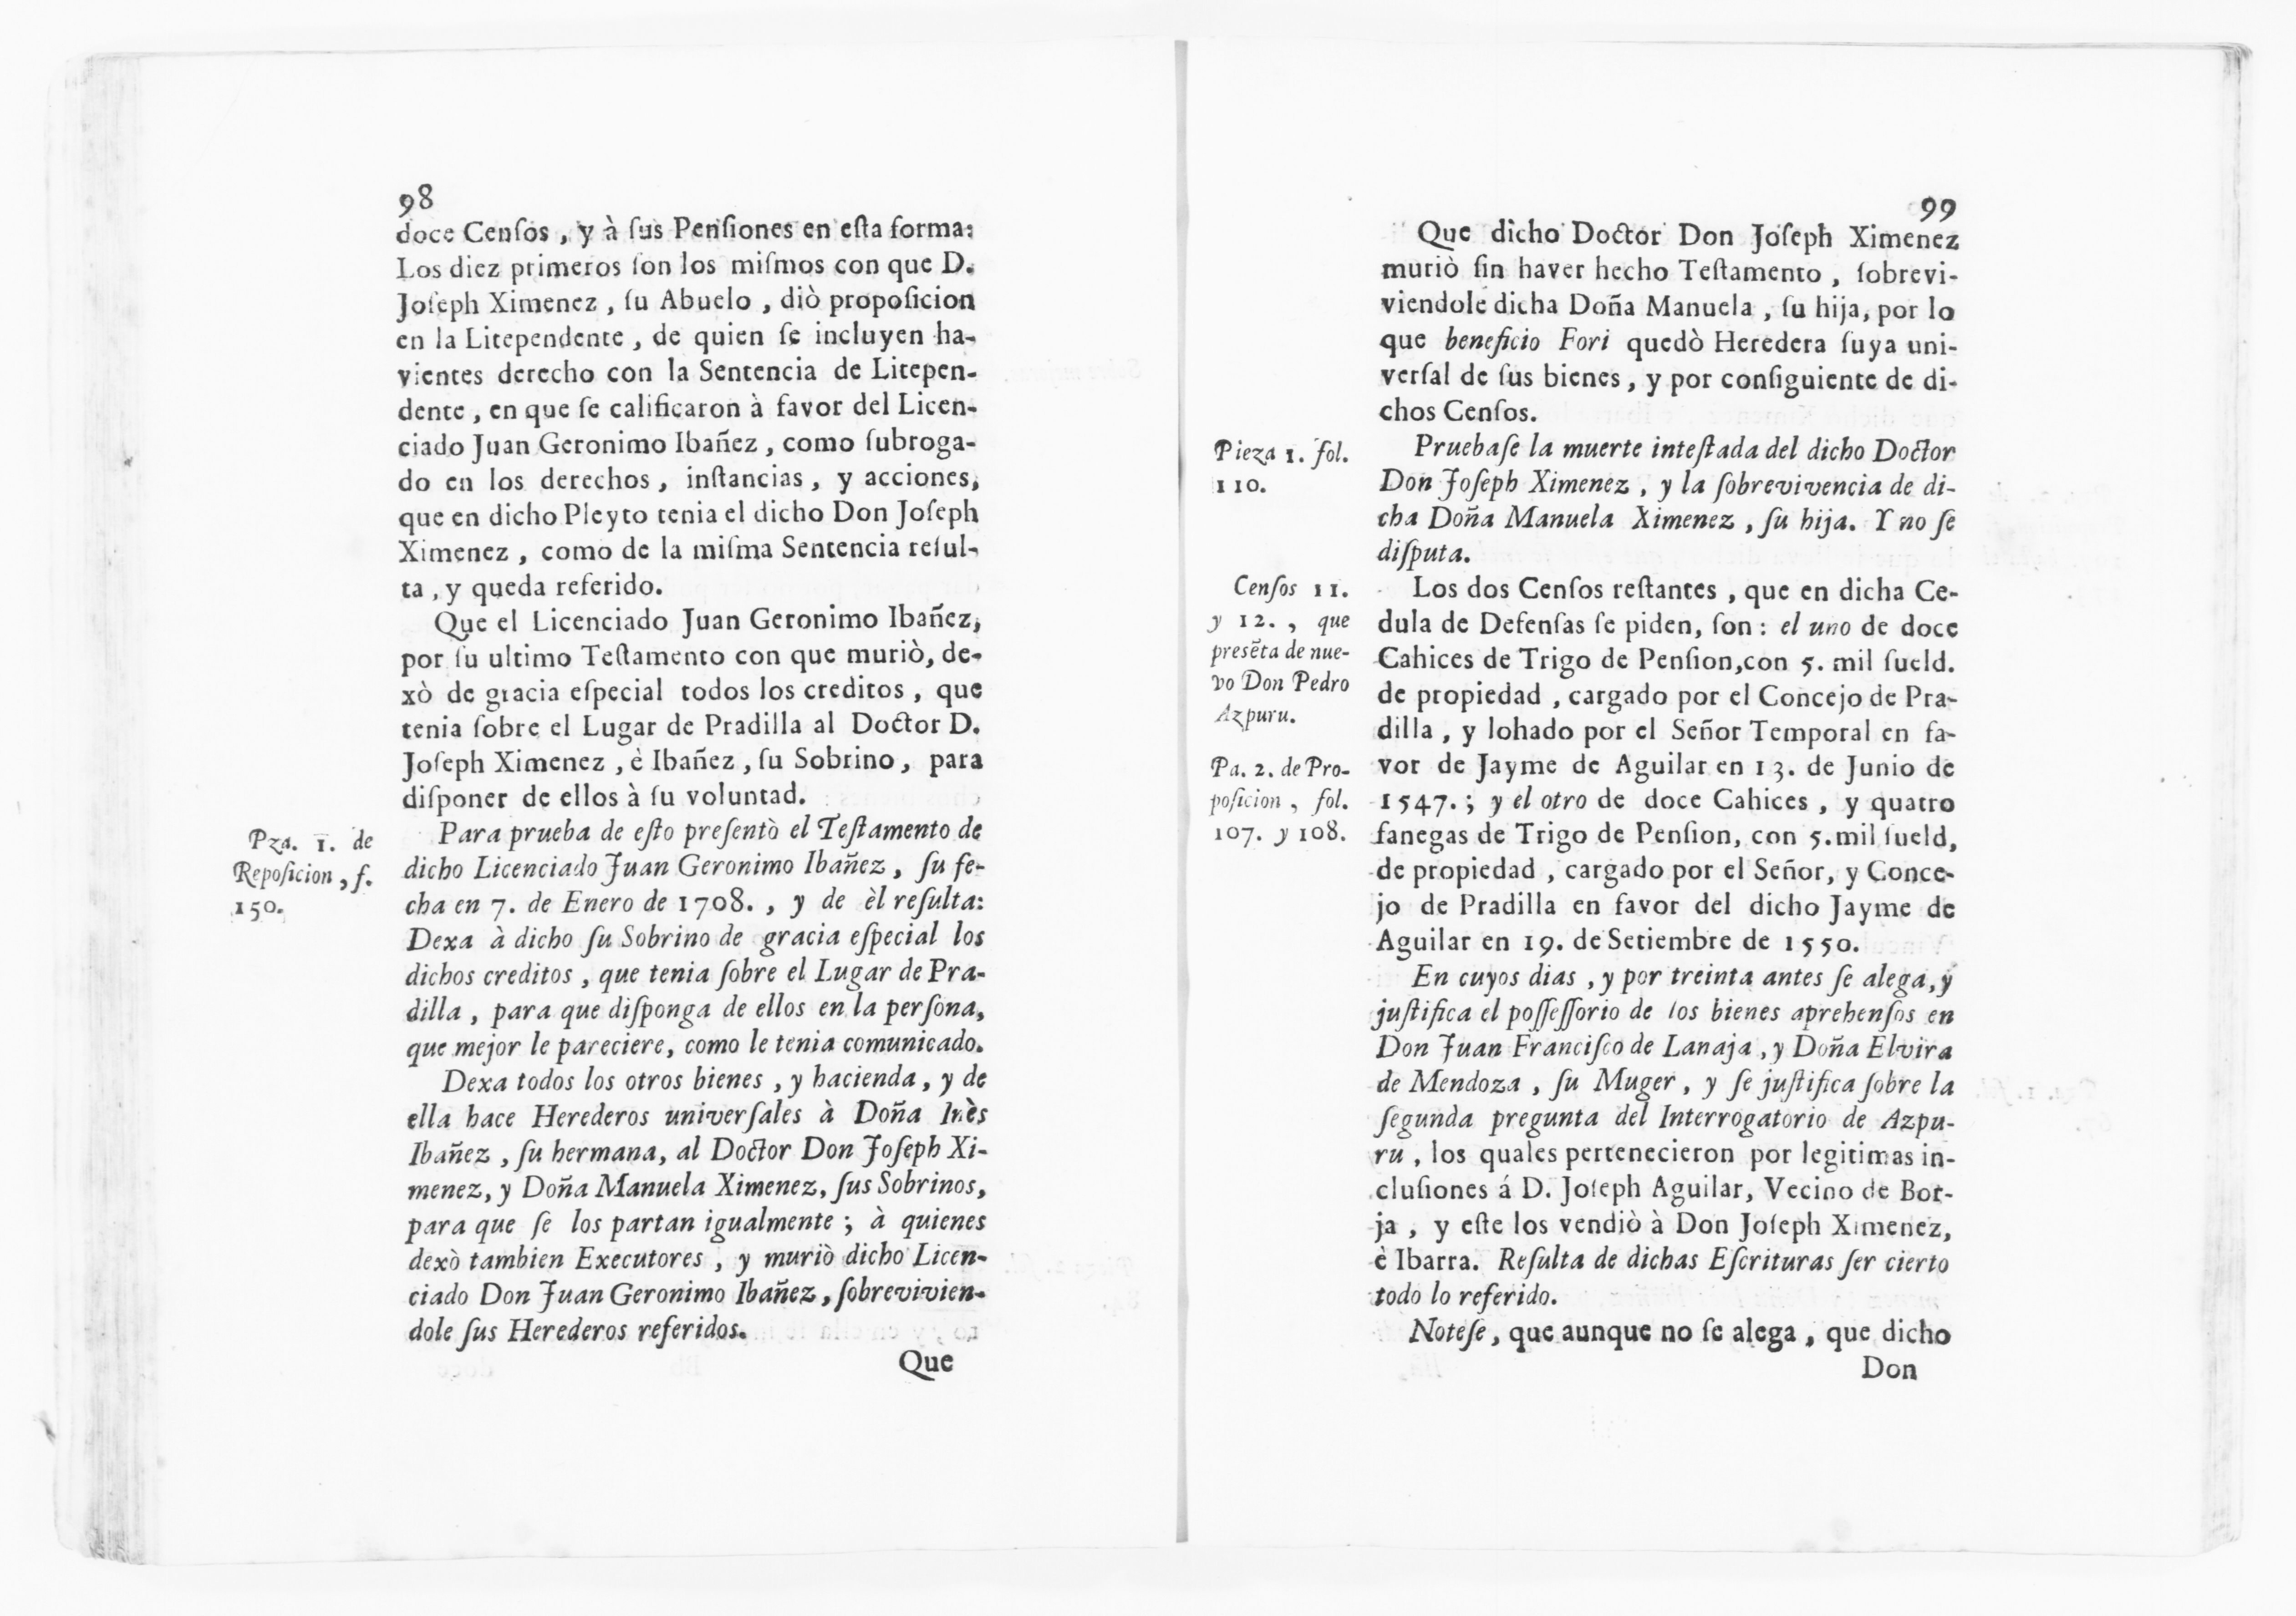 98
doce Censos , y à ſus Penſiones en eſta forma:
Los diez primeros ſon los miſmos con que D.
Joſeph Ximenez , ſu Abuelo , diò propoſicion
en la Litependente , de quien ſe incluyen ha-
vientes derecho con la Sentencia de Litepen-
dente , en que ſe calificaron à favor del Licen-
ciado Juan Geronimo Ibañez , como ſubroga-
do en los derechos , inſtancias , y acciones,
que en dicho Pleyto tenia el dicho Don Joſeph
Ximenez , como de la miſma Sentencia reſul-
ta , y queda referido.
Que el Licenciado Juan Geronimo Ibañez,
por ſu ultimo Teſtamento con que muriò, de-
xò de gracia eſpecial todos los creditos , que
tenia ſobre el Lugar de Pradilla al Doctor D.
Joſeph Ximenez , è Ibañez , ſu Sobrino , para
diſponer de ellos à ſu voluntad.
Pza. 1. de
Repoſicion , f.
150.
Para prueba de eſto preſentò el Teſtamento de
dicho Licenciado Juan Geronimo Ibañez , ſu fe-
cha en 7. de Enero de 1708. , y de èl reſulta:
Dexa à dicho ſu Sobrino de gracia eſpecial los
dichos creditos , que tenia ſobre el Lugar de Pra-
dilla , para que diſponga de ellos en la perſona,
que mejor le pareciere, como le tenia comunicado.
Dexa todos los otros bienes , y hacienda , y de
ella hace Herederos univerſales à Doña Inès
Ibañez , ſu hermana, al Doctor Don Joſeph Xi-
menez, y Doña Manuela Ximenez, ſus Sobrinos,
para que ſe los partan igualmente ; à quienes
dexò tambien Executores , y muriò dicho Licen-
ciado Don Juan Geronimo Ibañez , ſobrevivien-
dole ſus Herederos referidos.
Que
99
Que dicho Doctor Don Joſeph Ximenez
muriò ſin haver hecho Teſtamento , ſobrevi-
viendole dicha Doña Manuela , ſu hija, por lo
que beneficio Fori quedò Heredera ſuya uni-
verſal de ſus bienes , y por conſiguiente de di-
chos Cenſos.
Pieza 1. fol.
110.
Pruebaſe la muerte inteſtada del dicho Doctor
Don Joſeph Ximenez , y la ſobrevivencia de di-
cha Doña Manuela Ximenez , ſu hija. Y no ſe
diſputa.
Cenſos 11.
y 12. , que
preſẽta de nue-
vo Don Pedro
Azpuru.
Pa. 2. de Pro-
poſicion , fol.
107. y 108.
Los dos Cenſos reſtantes , que en dicha Ce-
dula de Defenſas ſe piden, ſon : el uno de doce
Cahices de Trigo de Penſion,con 5. mil ſueld.
de propiedad , cargado por el Concejo de Pra-
dilla , y lohado por el Señor Temporal en fa-
vor de Jayme de Aguilar en 13. de Junio de
1547. ; y el otro de doce Cahices , y quatro
fanegas de Trigo de Penſion, con 5.mil ſueld,
de propiedad , cargado por el Señor, y Conce-
jo de Pradilla en favor del dicho Jayme de
Aguilar en 19. de Setiembre de 1550.
En cuyos dias , y por treinta antes ſe alega, y
juſtifica el poſſeſſorio de los bienes aprehenſos en
Don Juan Franciſco de Lanaja , y Doña Elvira
de Mendoza , ſu Muger , y ſe juſtifica ſobre la
ſegunda pregunta del Interrogatorio de Azpu-
ru , los quales pertenecieron por legitimas in-
cluſiones á D. Joſeph Aguilar, Vecino de Bor-
ja , y eſte los vendiò à Don Joſeph Ximenez,
è Ibarra. Reſulta de dichas Eſcrituras ſer cierto
todo lo referido.
Noteſe , que aunque no ſe alega , que dicho
Don